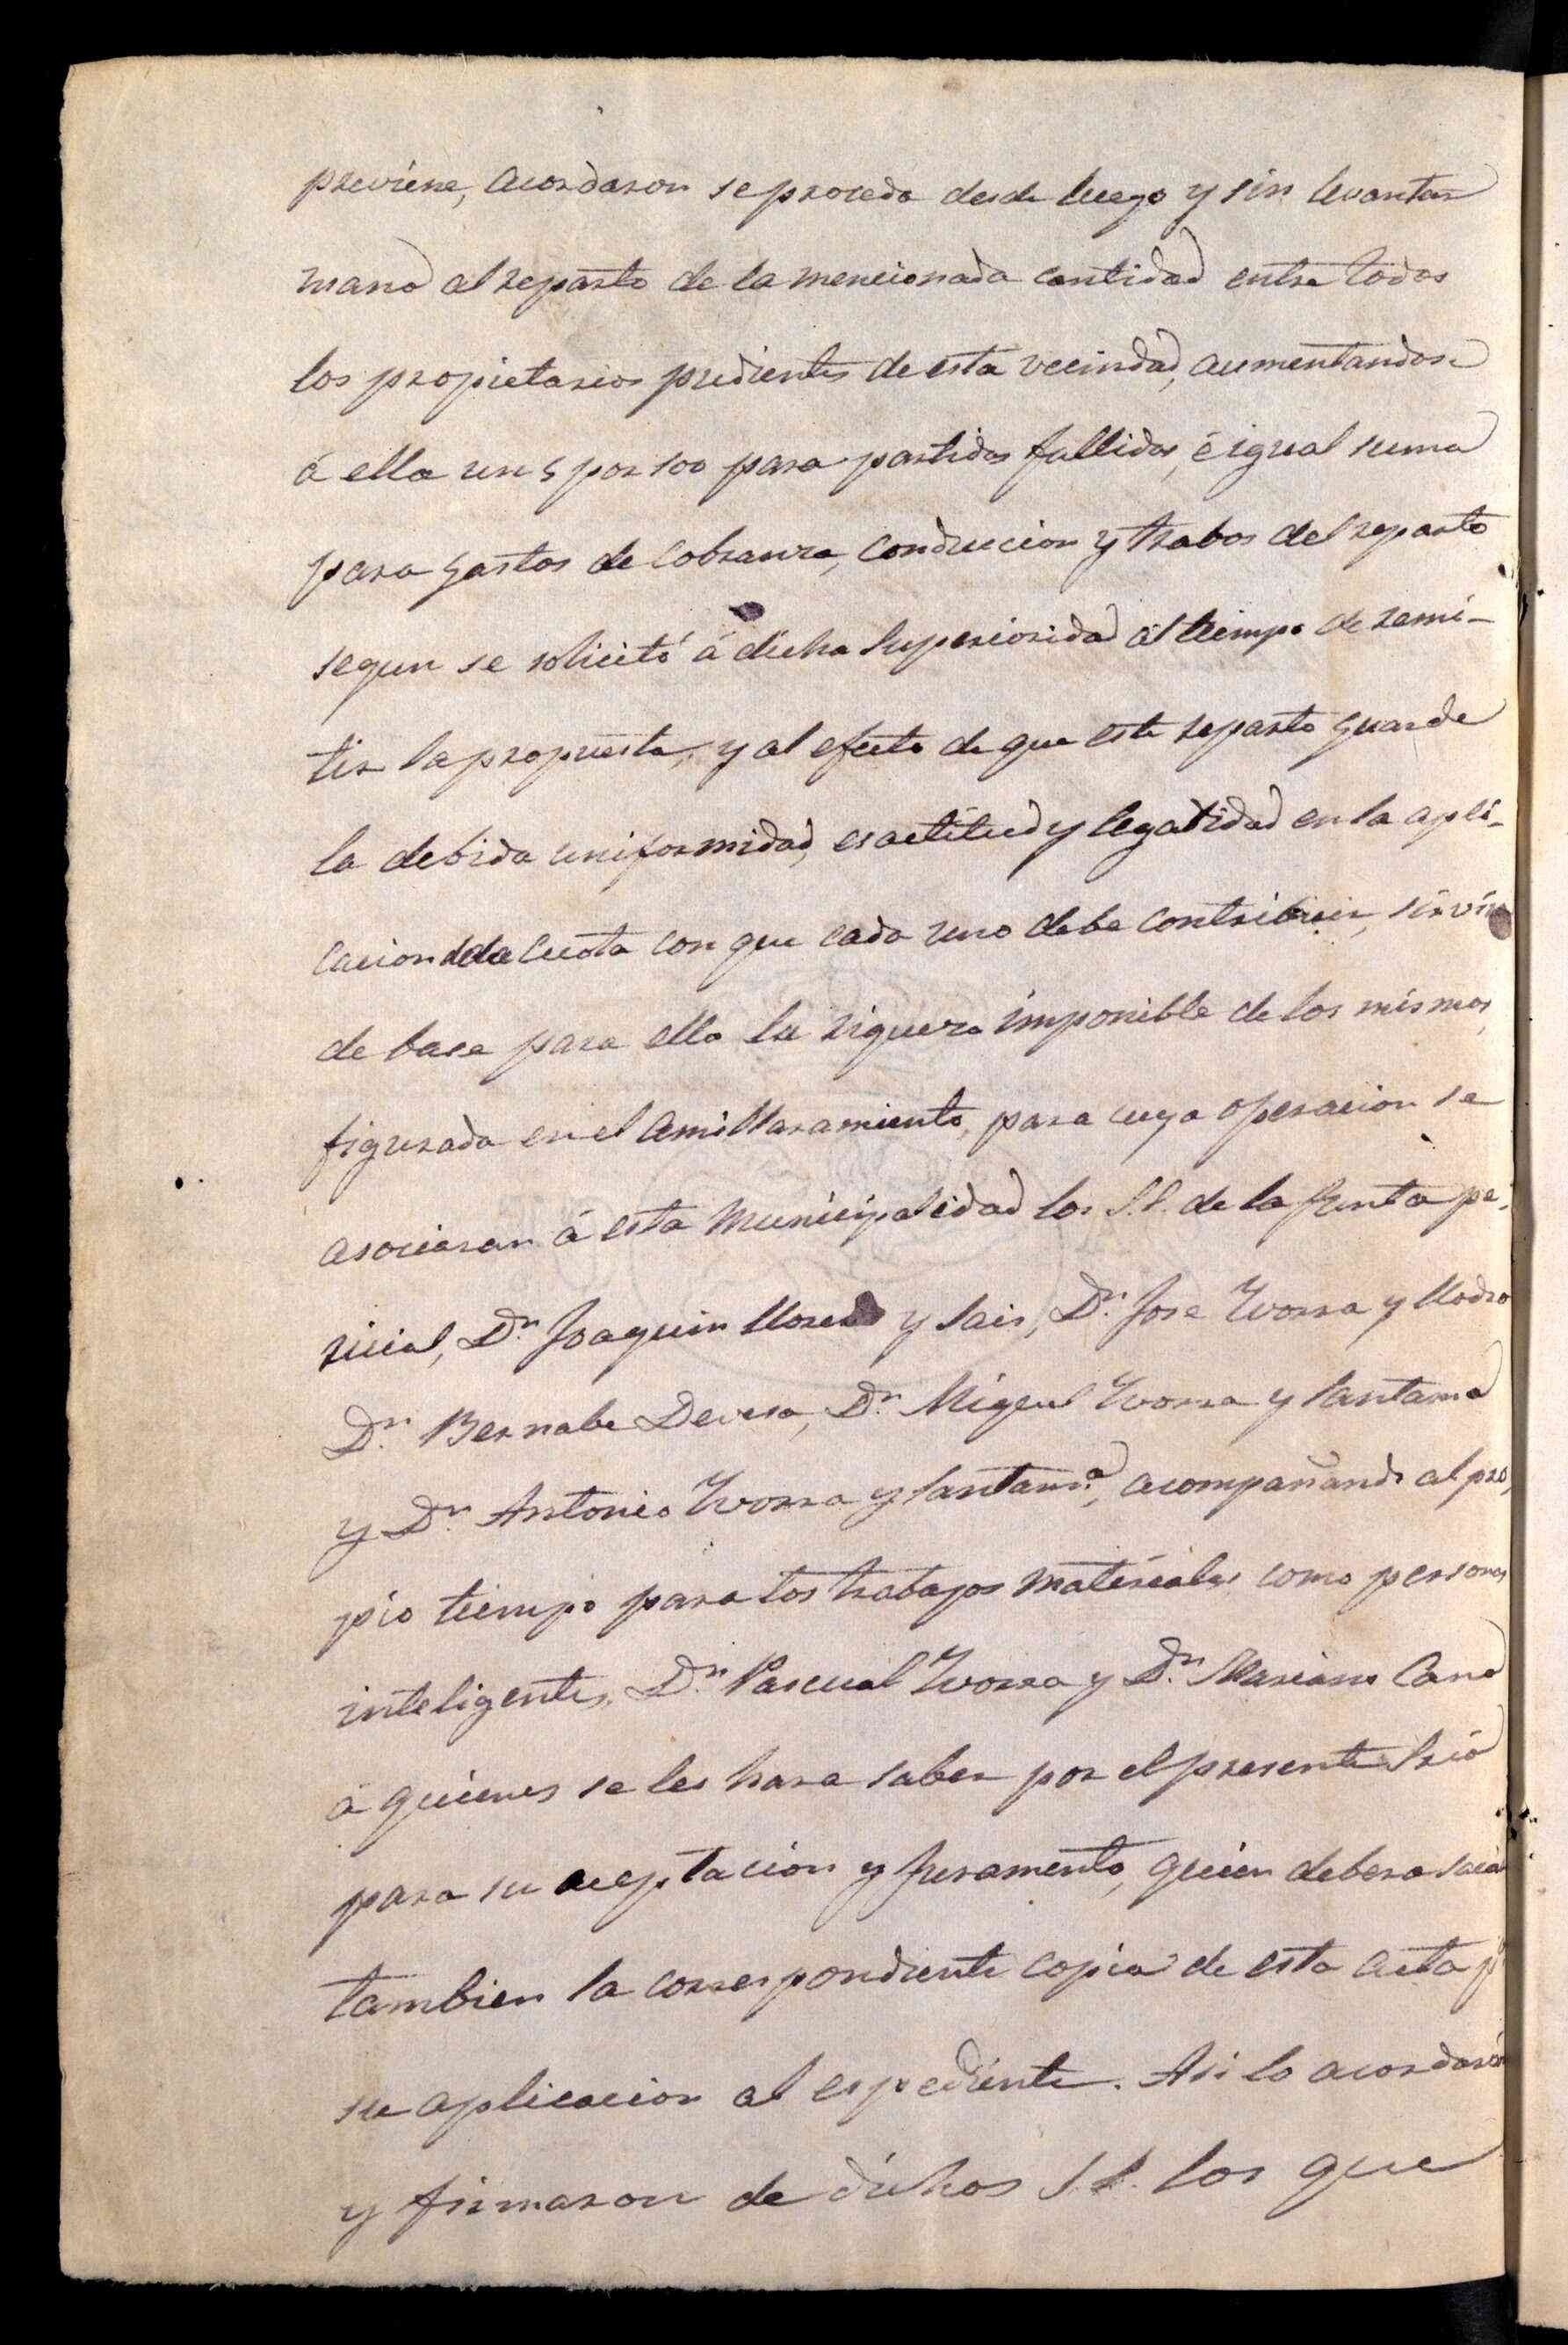 previene, acordaron se proceda desde luego y sin levantar
mano al reparto de la mencionada cantidad entre todos
los propietarios pudientes de esta vecindad, aumentandose
á ella un 5 por 100 para partidas fallidas, é igual suma
para gastos de cobranza, conduccion y trabos del reparto
segun se solicitó á dicha Superioridad al tiempo de remi-
tir la propuesta, y al efecto de que este reparto guarde
la debida uniformidad, esactitud y legalidad en la apli-
cacion de la cuota con que cada uno debe contribuir, sirvira
de base para ello la riqueza imponible de los mismos
figurada en el amillaramiento, para cuya operacion se
asociaran á esta Municipalidad los S.S. de la Junta pe-
ricial, Dn. Joaquin Llorens y Sais, Dn. Jose Yvorra y Llodro
Dn. Bernabe Devesa, Dn. Miguel Yvorra y Santama
y Dn. Antonio Yvorra y Santama., acompañando al pro-
pio tiempo para los trabajos materiales como personas
inteligentes, Dn. Pascual Yvorra y Dn. Mariano Cano
á quienes se les hara saber por el presente Srio
para su aceptacion y juramento, quien debera sacar
tambien la correspondiente copia de esta acta pa
su aplicacion al espediente. Asi lo acordaron
y firmaron de dichos S.S. los que